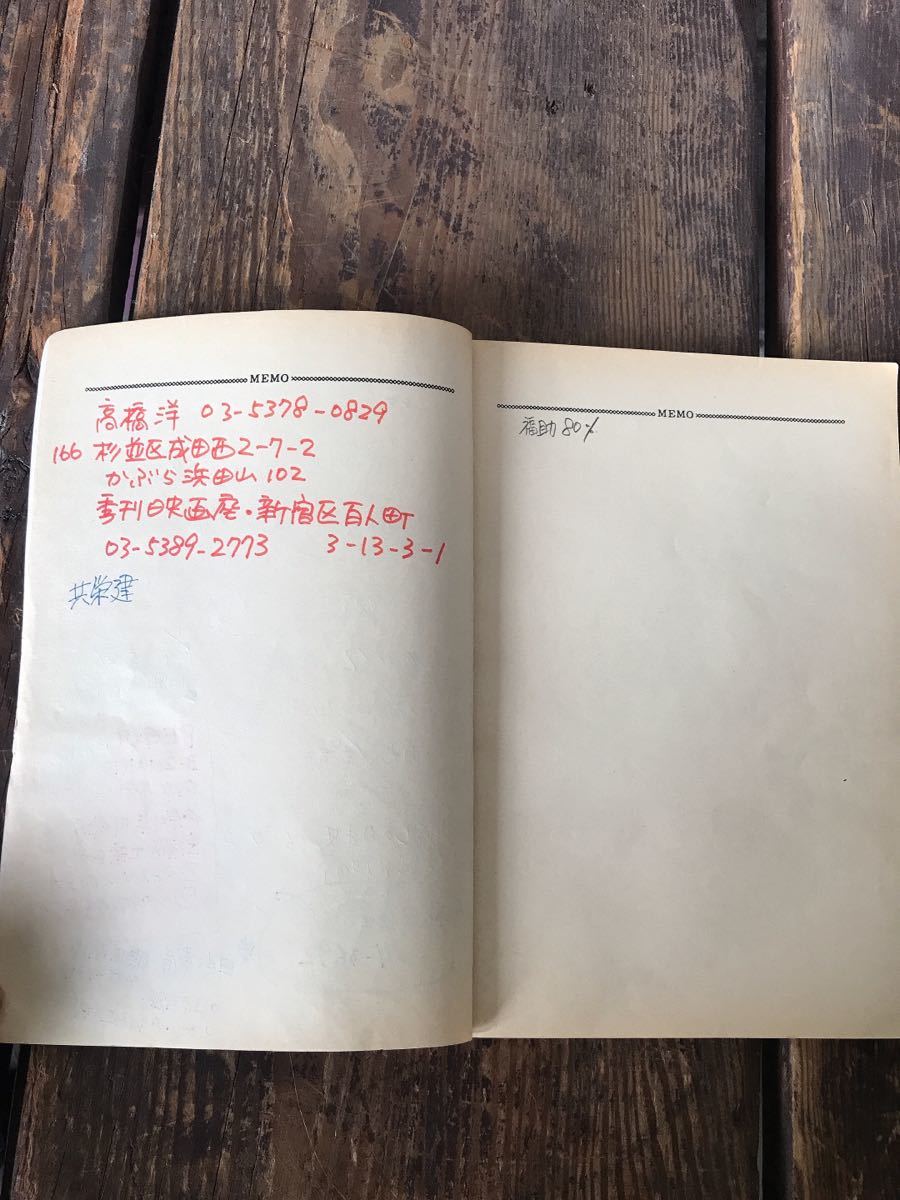 MEMO
高橋洋 03-5378-0829
166 杉並区成田西2-7-2
かぶら浜田山102
季刊映画座・新宿区百人町
03-5389-2773 3-13-3-1
共栄建
MEMO
福助80%